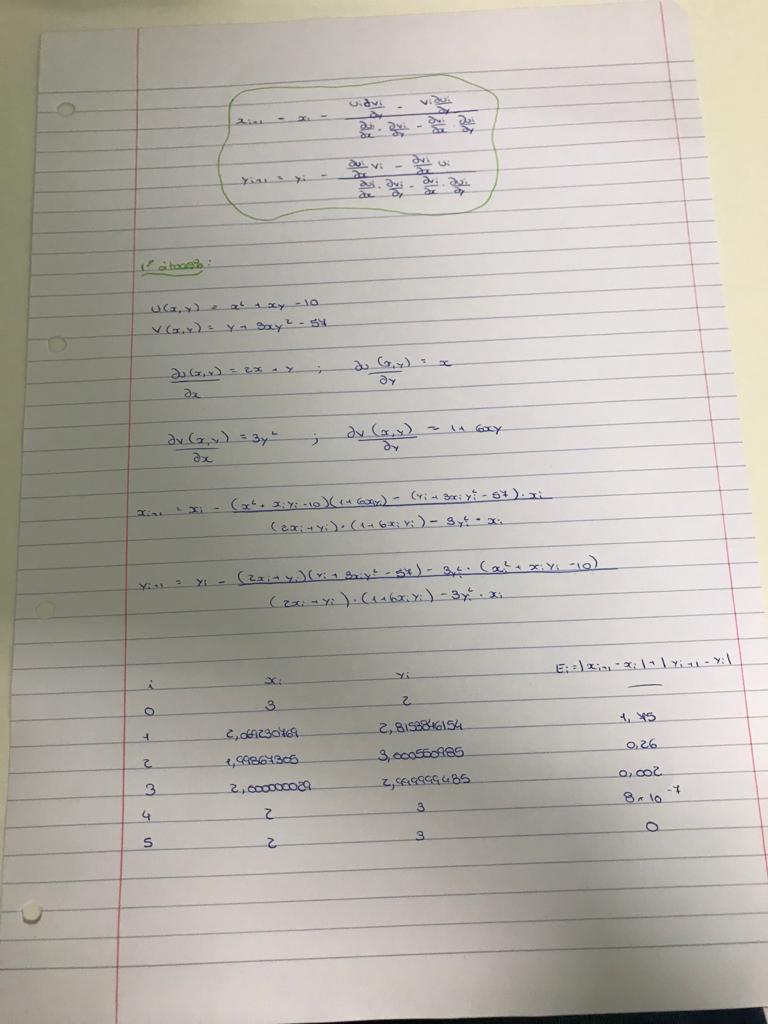 xᵢ₊₁ = xᵢ - (uᵢ ∂vᵢ/∂y - vᵢ ∂uᵢ/∂y) / (∂uᵢ/∂x · ∂vᵢ/∂y - ∂vᵢ/∂x · ∂uᵢ/∂y)
yᵢ₊₁ = yᵢ - (∂uᵢ/∂x vᵢ - ∂vᵢ/∂x uᵢ) / (∂uᵢ/∂x · ∂vᵢ/∂y - ∂vᵢ/∂x · ∂uᵢ/∂y)
U(x,y) = x² + xy - 10
V(x,y) = y + 3xy² - 57
∂u(x,y)/∂x = 2x + y ; ∂u(x,y)/∂y = x
∂v(x,y)/∂x = 3y² ; ∂v(x,y)/∂y = 1 + 6xy
xᵢ₊₁ = xᵢ - ((x² + xᵢyᵢ - 10)(1 + 6xᵢyᵢ) - (yᵢ + 3xᵢyᵢ² - 57) · xᵢ) / ((2xᵢ + yᵢ) · (1 + 6xᵢyᵢ) - 3yᵢ² · xᵢ)
yᵢ₊₁ = yᵢ - ((2xᵢ + yᵢ)(yᵢ + 3xᵢyᵢ² - 57) - 3yᵢ² · (xᵢ² + xᵢyᵢ - 10)) / ((2xᵢ + yᵢ) · (1 + 6xᵢyᵢ) - 3yᵢ² · xᵢ)
i xᵢ yᵢ Eᵢ = |xᵢ₊₁ - xᵢ| + |yᵢ₊₁ - yᵢ|
0 3 2 —
1 2,069230769 2,8153846154 1,75
2 1,99867305 3,000550985 0,26
3 2,000000029 2,999999485 0,002
4 2 3 8×10⁻⁷
5 2 3 0